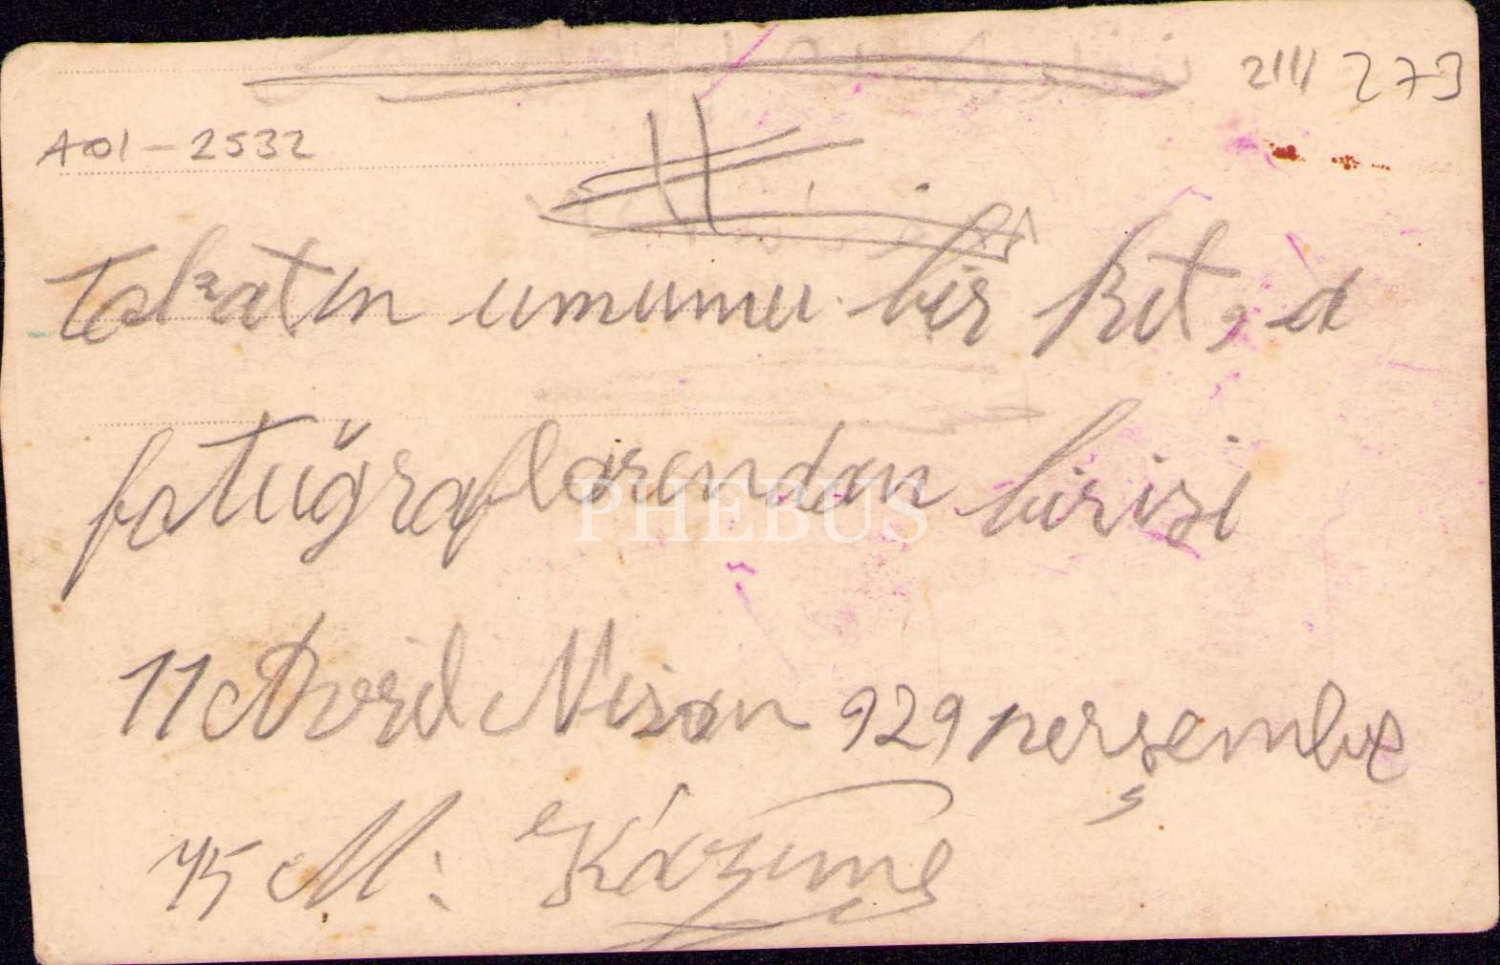 2111 273
A01-2532
Tokatın umumu bir kıt,a
fotuğraflarından birisi
11 Avril Nisan 929 perşembe
M: Kâzım
PHEBUS